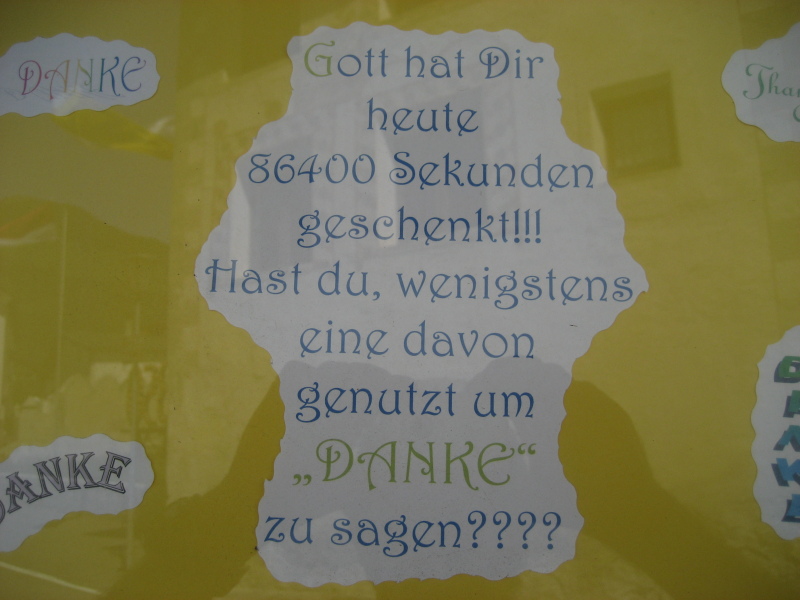 DANKE
Gott hat Dir
heute
86400 Sekunden
geschenkt!!!
Hast du, wenigstens
eine davon
genutzt um
„DANKE“
zu sagen????
DANKE
DANKE